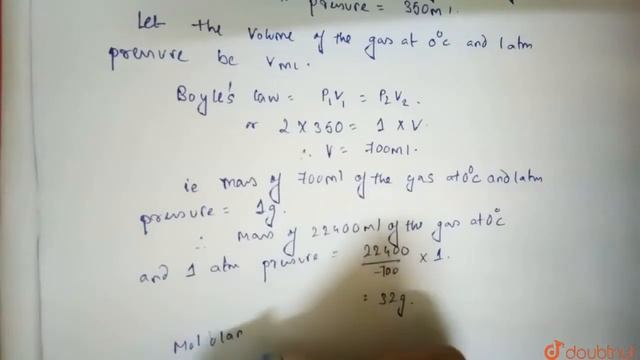 pressure = 350ml.
Let the volume of the gas at 0°c and 1atm
pressure be Vml.
Boyle's law = P₁V₁ = P₂V₂.
or 2 × 350 = 1 × V
∴ V = 700ml.
ie mass of 700ml of the gas at 0°c and 1atm
pressure = 1g.
∴ mass of 22400ml of the gas at 0°c
and 1 atm pressure = 22400/700 × 1.
= 32g.
Mol
doubtnut